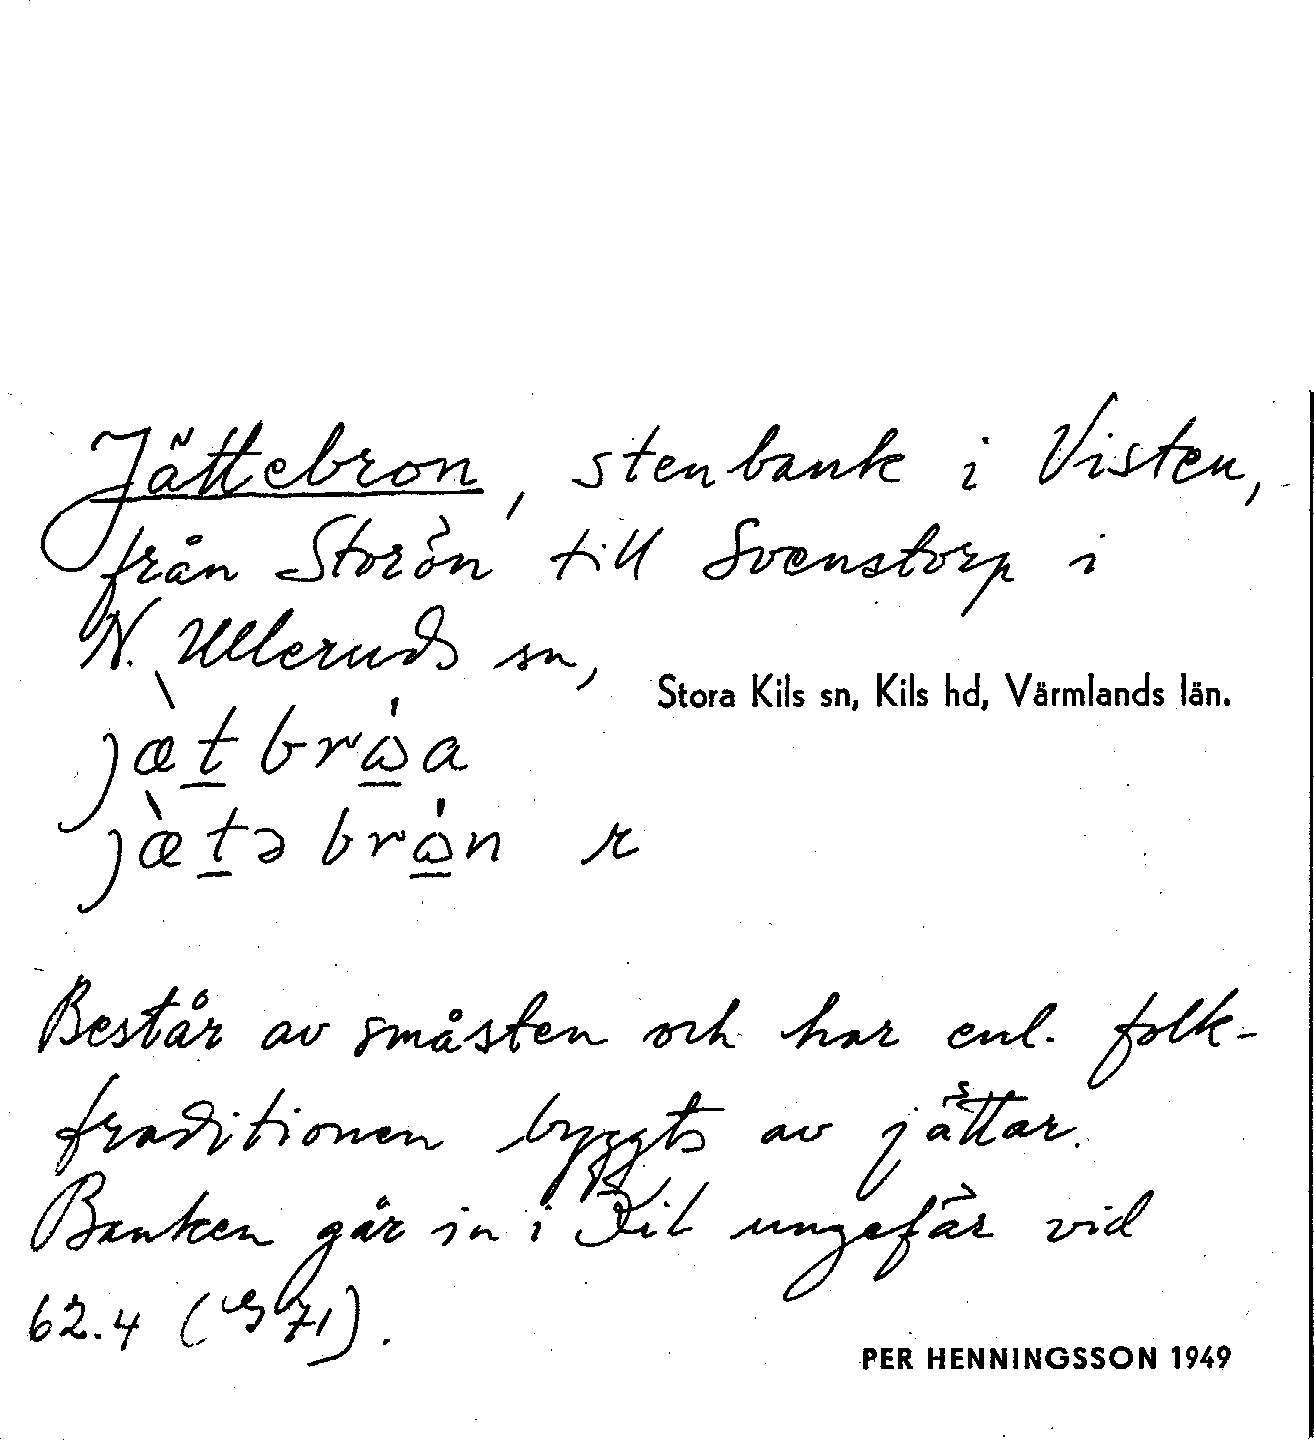 Jättebron, stenbank i Visten,
från Storön till Svenstorp i
N. Ulleruds sn,
Stora Kils sn, Kils hd, Värmlands län.
Består av småsten och har enl. folk-
traditionen byggts av jättar.
Banken går in i Kil ungefär vid
62.4 ( 71).
PER HENNINGSSON 1949